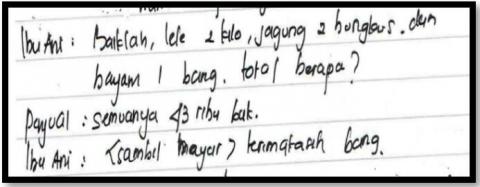 Ibu Ani : Baiklah, lele 2 kilo, jagung 2 bungkus. dan
bayam 1 bang. total berapa?
Penjual : semuanya 43 ribu buk.
Ibu Ani : <sambil mayar> terimakasih bang.